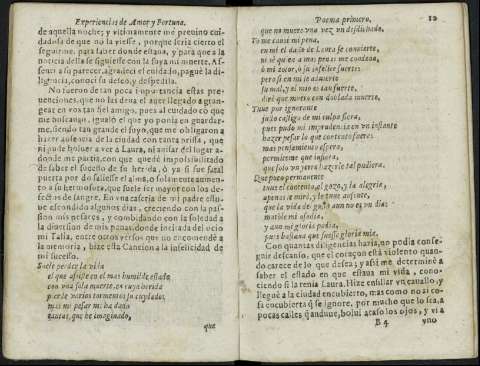 Experiencias de Amor y Fortuna.
de aquella noche; y vltimamente me preuino cui-
dadosa de que no la viesse, porque seria cierto el
seguirme, para saber donde estaua, y para que a la
noticia della se siguiesse con la suya mi muerte. As-
senti a su parecer, agradeci el cuidado, pagué la di-
ligencia, conoci su deseo, y despedila.
No fueron de tan poca importancia estas pre-
uenciones, que no las deua el auer llegado a gran-
gear en vos tan fiel amigo, pues al cuidado con que
me buscauan, igualó el que yo ponia en guardar-
me, siendo tan grande el suyo, que me obligaron a
hazer ausencia de la ciudad con tanta prisa, que
ni pude boluer a ver a Laura, ni auisar del lugar a
donde me partia, con que quedé impossibilitado
de saber el sucesso de su herida, ó ya si fue fatal
puerta por do saliesse el alma, o solamente aumen-
to a su hermosura, que suele ser mayor con los de-
fectos de sangre. En vna caseria de mi padre estu-
ue escondido algunos dias, creciendo con la pas-
sion mis pesares, y combidando con la soledad a
la diuersion de mis penas, donde incitada del ocio
mi Talia, entre otros versos que no encomendé a
la memoria, hize esta Cancion a la infelicidad de
mi sucesso.
Suele perder la vida
el que assiste en el mas humilde estado,
con vna sola muerte, en cuya herida
pierde varios tormentos su cuydado,
mas mi pesar me ha dado
tantas, que he imaginado,
que
Poema primero. 12
que no muere vna vez vn desdichado.
en mi el daño de Laura se conuierte,
ó mi dolor, ó su infelize suerte;
pero si en mi se aduierte
su mal, y el mio es tan fuerte,
diré que muero con doblada muerte.
Tuue por ignorante
justo castigo de mi culpa fiera,
pues pudo mi imprudencia en vn instante
hazer pesar lo que contento fuera:
mas pensamiento espera,
permiteme que infiera,
que solo vn yerro hazerle tal pudiera.
Que poco permanente
tuue el contento, el gozo, y la alegria,
apenas le miré, y le tuue ausente,
que la vida de gusto aun no es vn dia:
Con quantas diligencias hazia, no podia conse-
guir descanso, que el coraçon está violento quan-
do carece de lo que dessea; y assi me determiné a
saber el estado en que estaua mi vida, cono-
ciendo si la tenia Laura. Hize ensillar vn cauallo, y
llegué a la ciudad encubierto, mas como no ai co-
sa encubierta q̃ se ignore, por mucho que lo sea, a
pocas calles q̃ anduue, bolui acaso los ojos, y vi a
B 4 vno